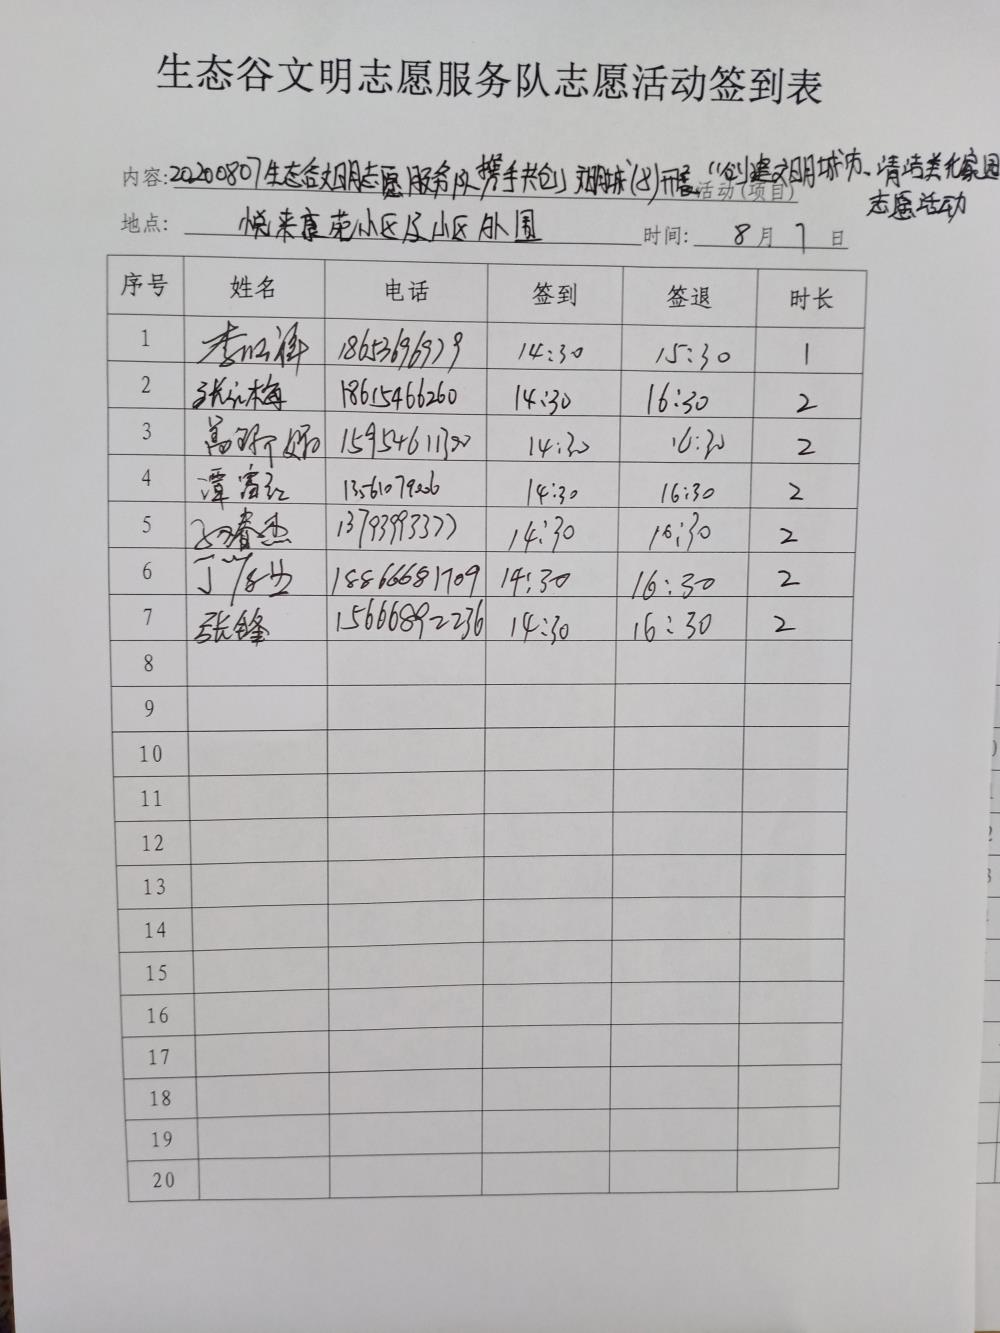 生态谷文明志愿服务队志愿活动签到表
内容:20200807生态谷文明志愿服务队"携手共创文明城"(8)开展"创建文明城市、清洁美化家园
活动(项目)
志愿活动
地点: 悦来康苑小区及小区外围 时间: 8月7日
序号 姓名 电话 签到 签退 时长
1 14:30 15:30 1
2 张红梅 18615466260 14:30 16:30 2
3 14:30 16:30 2
4 14:30 16:30 2
5 13793993377 14:30 16:30 2
6 18866681709 14:30 16:30 2
7 张锋 15666892236 14:30 16:30 2
8
9
10
11
12
13
14
15
16
17
18
19
20